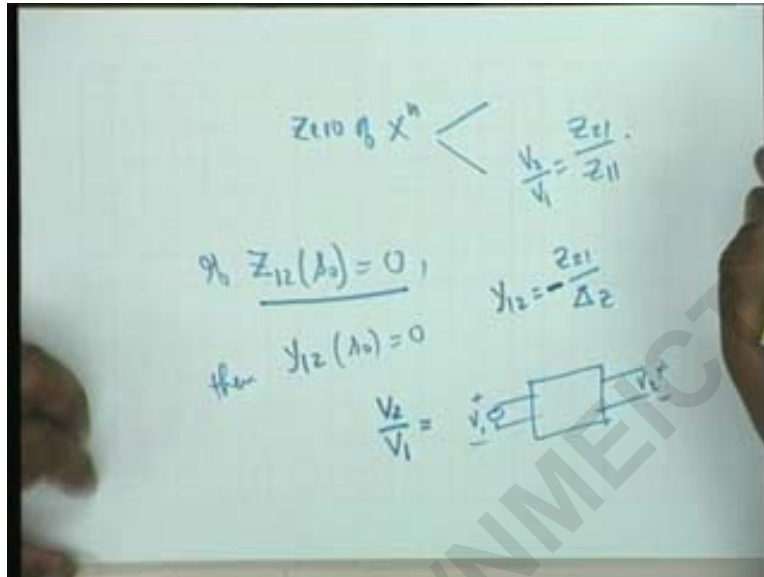 Zero of Xⁿ <
V₂/V₁ = Z₂₁/Z₁₁.
If Z₁₂(s₀) = 0,
y₁₂ = - Z₂₁/Δz
then y₁₂(s₀) = 0
V₂/V₁ =
+ V₁ -
V₂ + -